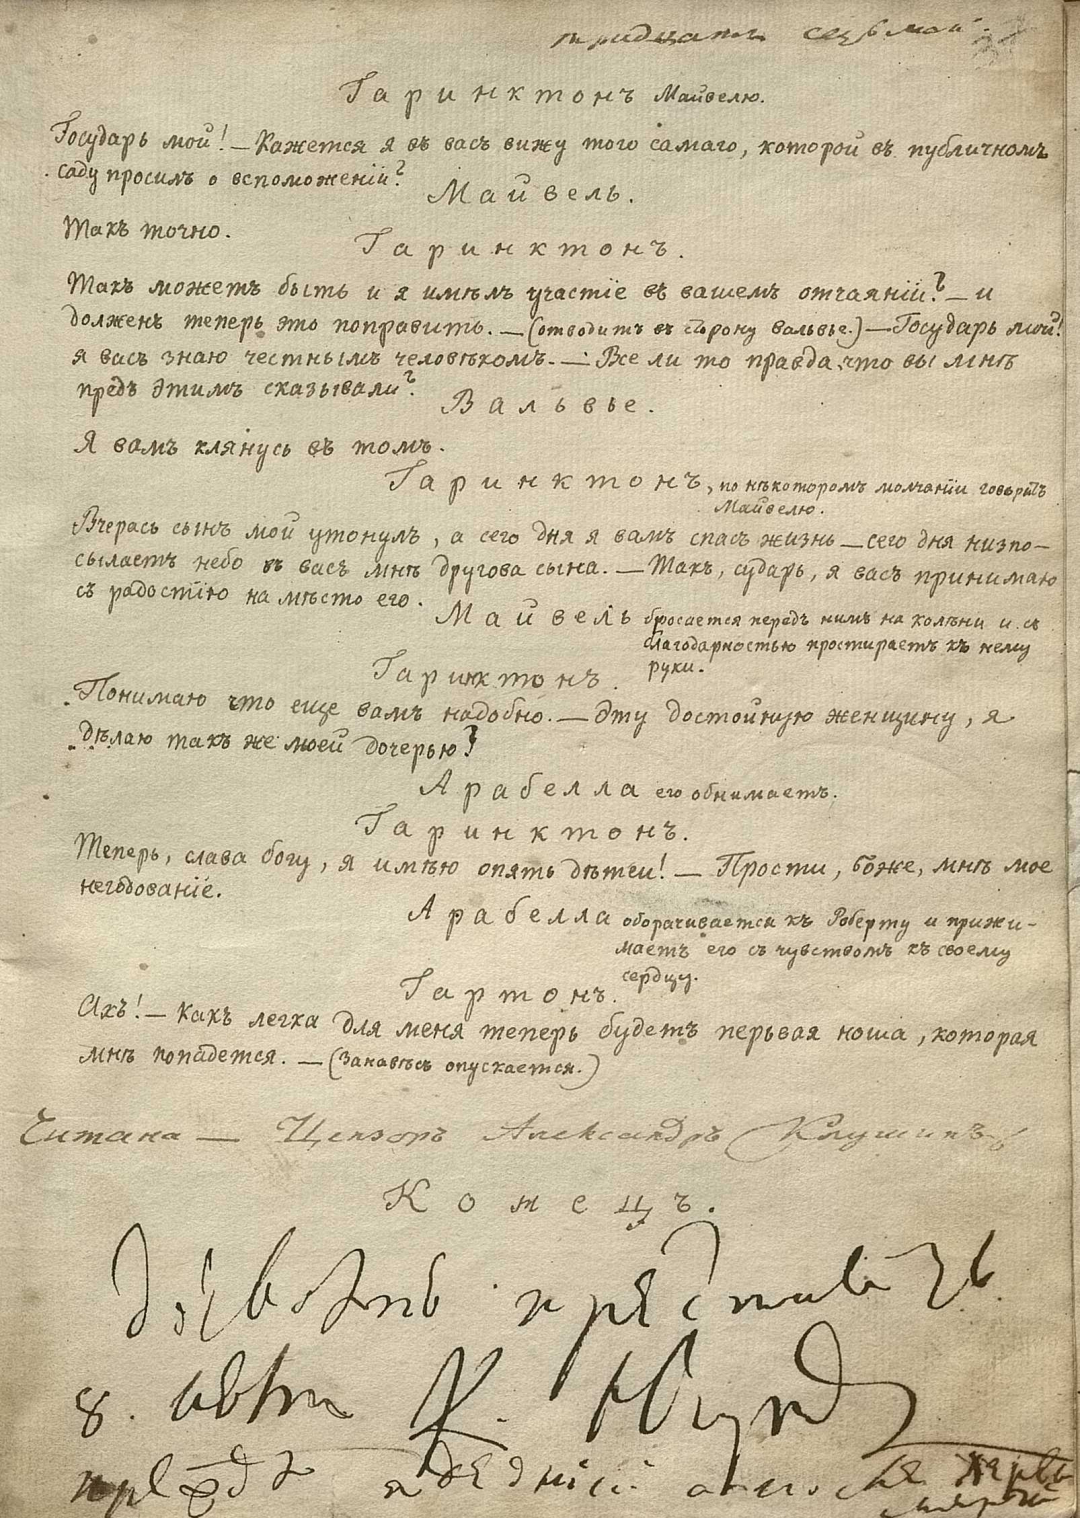 тридцать седьмой.
Гаринктонъ Майвелю.
Государь мой! — Кажется я въ васъ вижу того самаго, которой въ публичномъ
саду просилъ о вспоможенïи?
Майвель.
Такъ точно.
Гаринктонъ.
Такъ можетъ быть и я имѣлъ участïе въ вашемъ отчаянïи? — и
долженъ теперь это поправить. — (отводитъ въ сторону Вальвье.) — Государь мой!
я васъ знаю честнымъ человѣкомъ. — Все ли то правда, что вы мнѣ
предъ этимъ сказывали?
Вальвье.
Я вамъ клянусь въ томъ.
Гаринктонъ, по нѣкоторомъ молчанïи говоритъ
Майвелю.
Вчерась сынъ мой утонулъ, а сего дня я вамъ спасъ жизнь — сего дня низпо-
сылаетъ небо въ васъ мнѣ другова сына. — Такъ, сударь, я васъ принимаю
съ радостïю на мѣсто его.
Майвель бросается передъ нимъ на колѣни и съ
благодарностью простираетъ къ нему
руки.
Гаринктонъ.
Понимаю что еще вамъ надобно. — Эту достойную женщину, я
дѣлаю такъ же моей дочерью?
Арабелла его обнимаетъ.
Гаринктонъ.
Теперь, слава богу, я имѣю опять дѣтей! — Прости, боже, мнѣ мое
негодованïе.
Арабелла оборачивается къ Роберту и прижи-
маетъ его съ чувствомъ къ своему
сердцу.
Гартонъ.
Ахъ! — Какъ легка для меня теперь будетъ перьвая ноша, которая
мнѣ попадется. — (Занавѣсъ опускается.)
Читана — Цензоръ Александръ Клушинъ
Конецъ.
8.